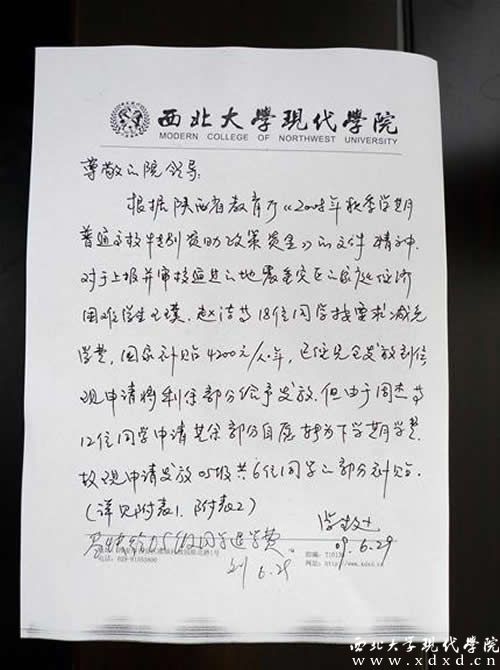 西北大學現代學院
MODERN COLLEGE OF NORTHWEST UNIVERSITY
尊敬的院领导:
根据陕西省教育厅《2008年秋季学期
普通高校特别资助政策资金》的文件精神.
对于上报并审核通过的地震重灾区的家庭经济
困难学生王璞、赵洁等18位同学按要求减免
学费, 国家补贴4200元/人·年, 已经完全发放到位
现申请将剩余部分给予发放. 但由于周杰等
12位同学申请其余部分自愿转为下学期学费
故现申请发放05级共6位同学的部分补贴.
(详见附表1、附表2)
学生处
09.6.29
05级同学退学费.
刘 6.29
电话: 029-
网址: http://www.xdxd.cn
西北大学现代学院
www.xdxd.cn